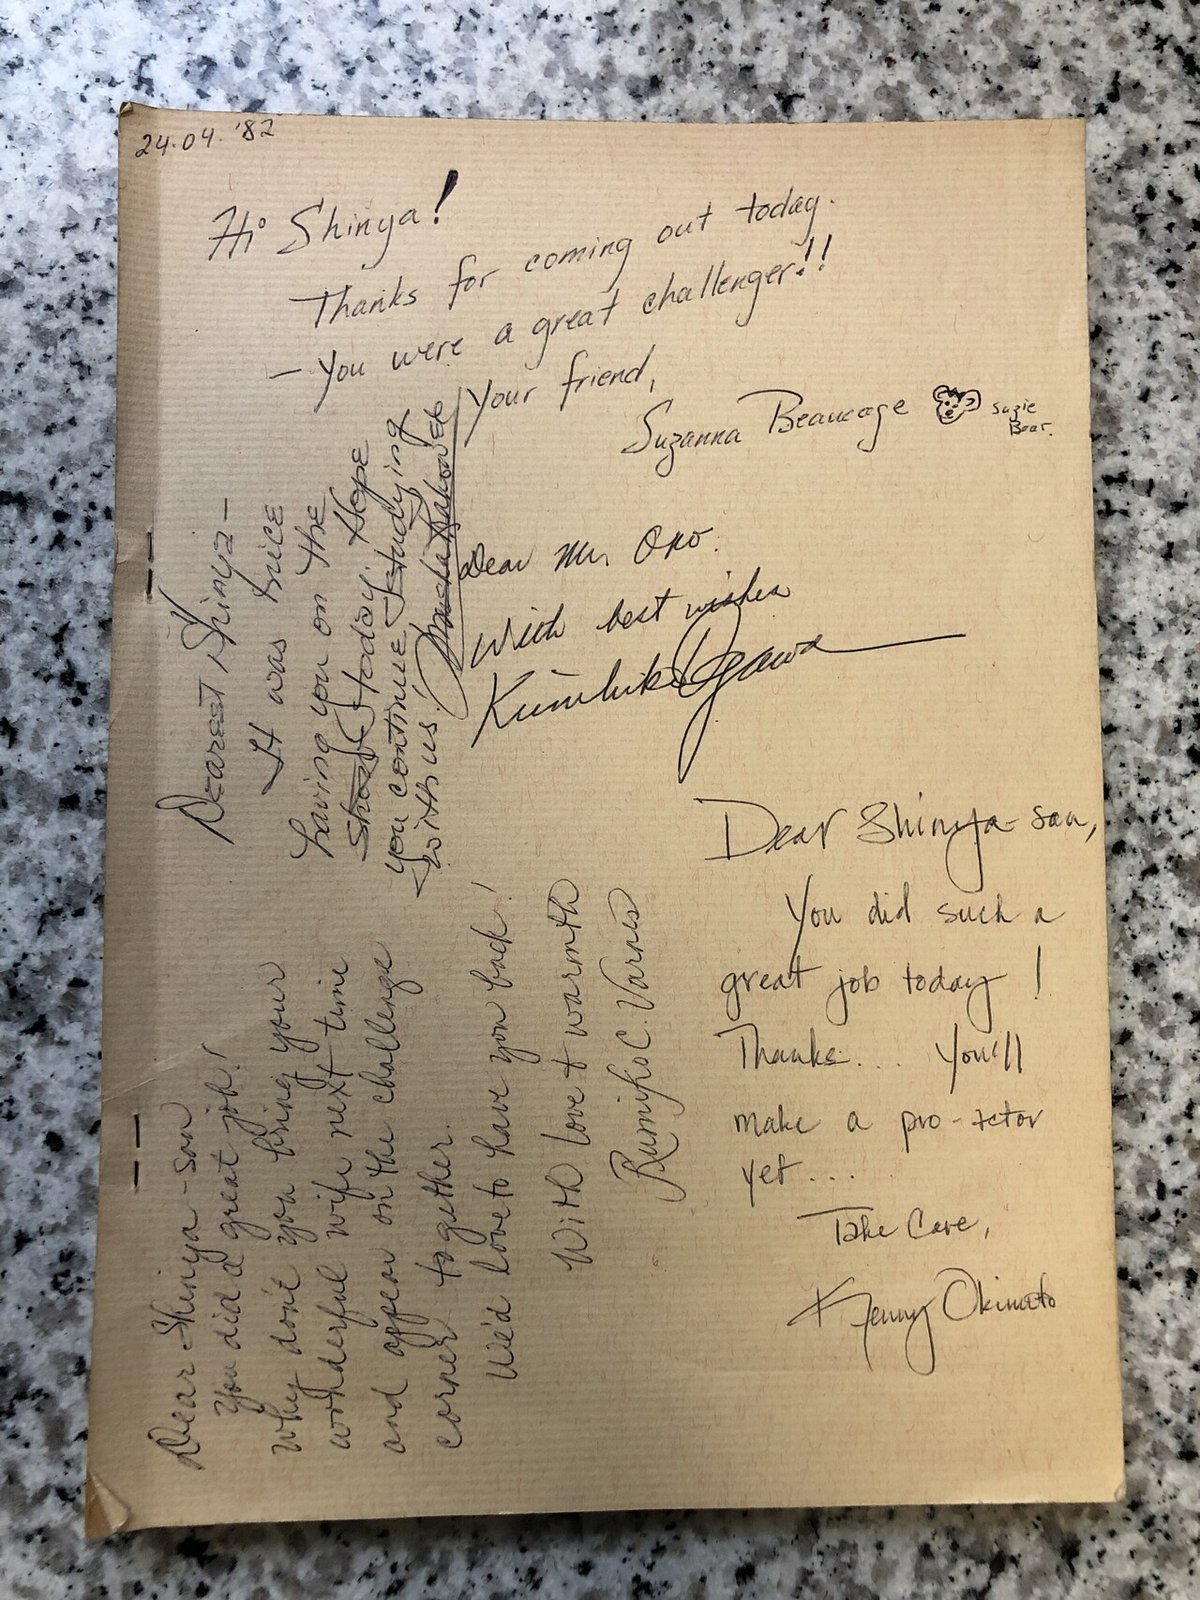 24.04.'82
Hi Shinya!
Thanks for coming out today.
— You were a great challenger!!
Your friend,
Suzanna Beaucage
Suzie
Bear.
Dearest Shinya—
It was nice
having you on the
show today. Hope
you continue studying
with us.
Dear Mr. Ono.
With best wishes
Kunihiko Ogawa
Dear Shinya-san
You did a great job!
Why don't you bring your
wonderful wife next time
and appear on the challenge
corner together.
We'd love to have you back!
With love & warmth
Rumiko C. Varnes
Dear Shinya-san,
You did such a
great job today!
Thanks... You'll
make a pro-actor
yet...
Take Care,
Kenny Okimoto